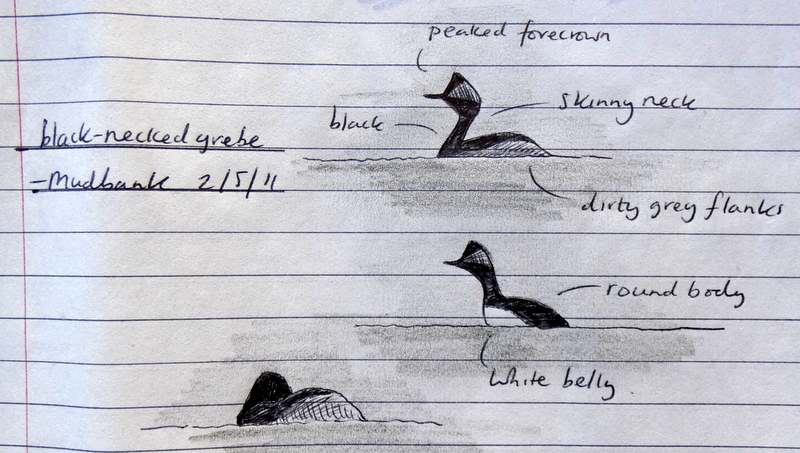 peaked forecrown
skinny neck
black
black-necked grebe
-Mudbank 2/5/11
dirty grey flanks
round body
White belly